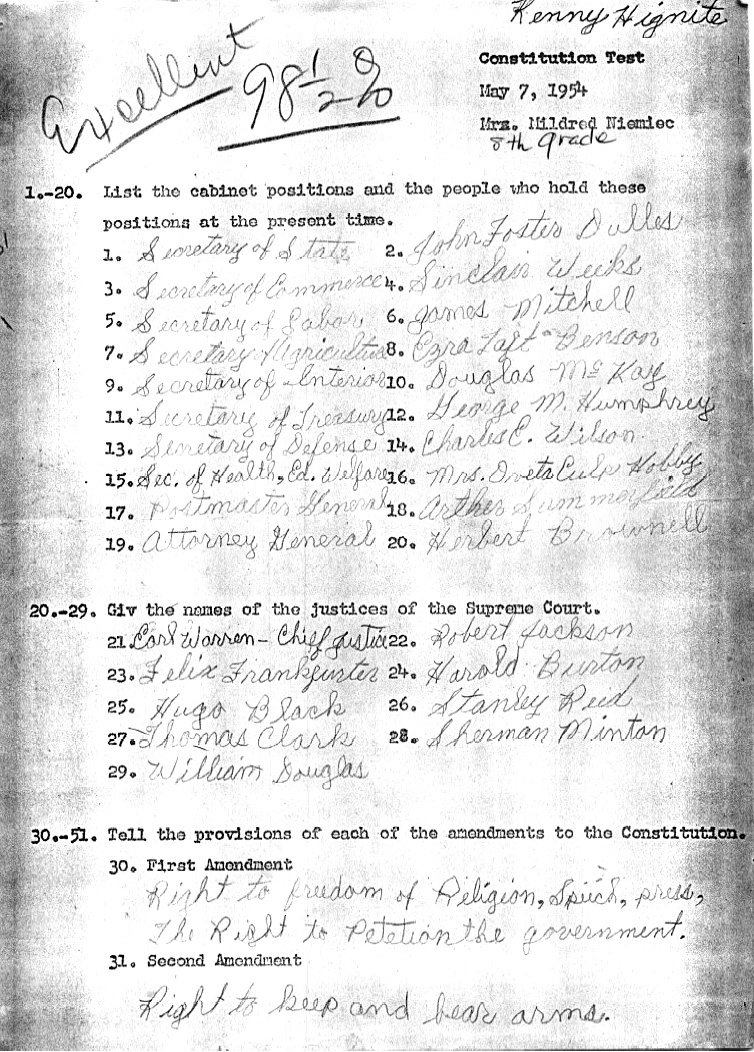 Kenny Hignite
Excellent
98 1/2 %
Constitution Test
May 7, 1954
Mrs. Mildred Niemiec
8th grade
1.-20. List the cabinet positions and the people who hold these
positions at the present time.
1. Secretary of State 2. John Foster Dulles
3. Secretary of Commerce 4. Sinclair Weeks
5. Secretary of Labor 6. James Mitchell
7. Secretary Agriculture 8. Ezra Taft Benson
9. Secretary of Interior 10. Douglas McKay
11. Secretary of Treasury 12. George M. Humphrey
13. Secretary of Defense 14. Charles E. Wilson
15. Sec. of Health, Ed. Welfare 16. Mrs. Oveta Culp Hobby
17. Postmaster General 18. Arther Summerfield
19. Attorney General 20. Herbert Brownell
20.-29. Giv the names of the justices of the Supreme Court.
21. Earl Warren - Chief justice 22. Robert Jackson
23. Felix Frankfurter 24. Harold Burton
25. Hugo Black 26. Stanley Reed
27. Thomas Clark 28. Sherman Minton
29. William Douglas
30.-51. Tell the provisions of each of the amendments to the Constitution.
30. First Amendment
Right to freedom of Religion, Speech, press,
The Right to Petetion the government.
31. Second Amendment
Right to keep and bear arms.